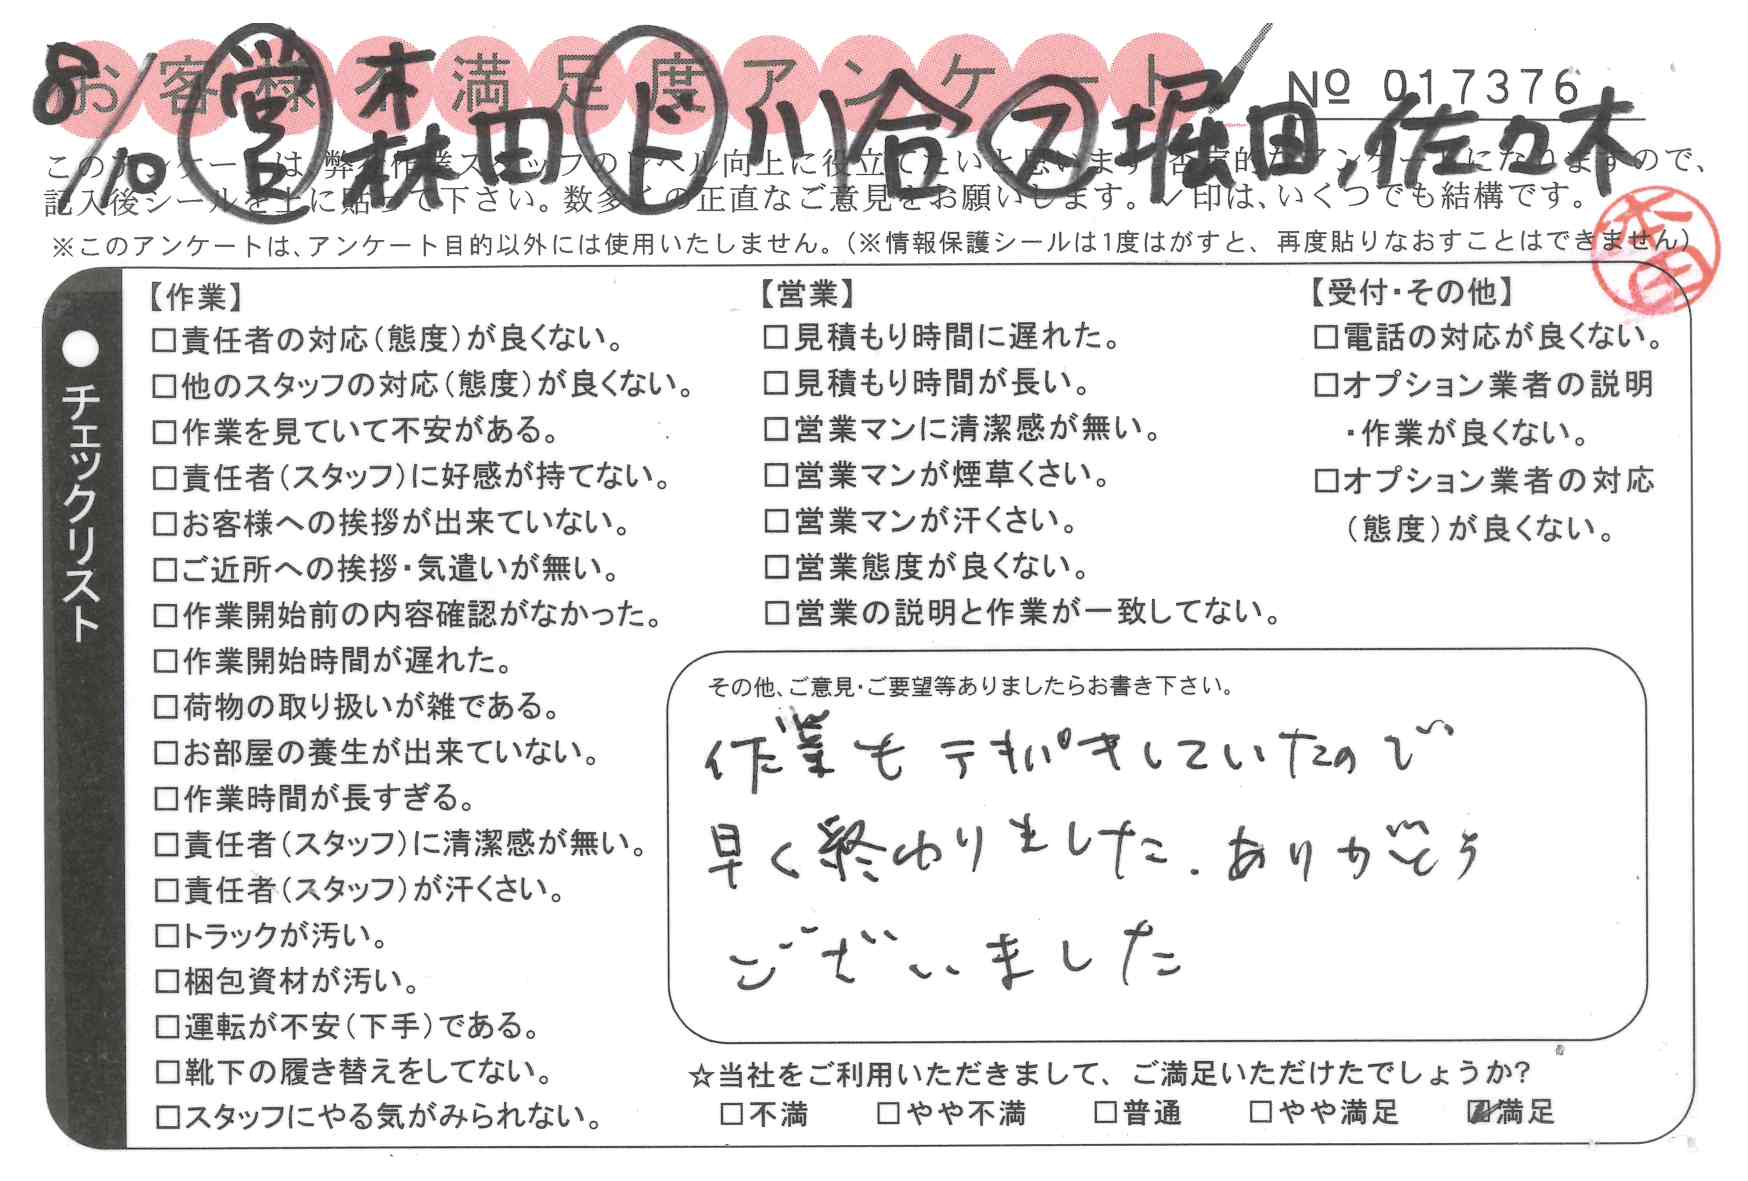 お客様不満足度アンケート
№ 017376
8/10 営 森田 ド 川合 ス 堀田,佐々木
このアンケートは、弊社作業スタッフのレベル向上に役立てたいと思います。否定的なアンケートになりますので、
記入後シールを上に貼って下さい。数多くの正直なご意見をお願いします。✓印は、いくつでも結構です。
※このアンケートは、アンケート目的以外には使用いたしません。（※情報保護シールは1度はがすと、再度貼りなおすことはできません）
●チェックリスト
【作業】
□責任者の対応（態度）が良くない。
□他のスタッフの対応（態度）が良くない。
□作業を見ていて不安がある。
□責任者（スタッフ）に好感が持てない。
□お客様への挨拶が出来ていない。
□ご近所への挨拶・気遣いが無い。
□作業開始前の内容確認がなかった。
□作業開始時間が遅れた。
□荷物の取り扱いが雑である。
□お部屋の養生が出来ていない。
□作業時間が長すぎる。
□責任者（スタッフ）に清潔感が無い。
□責任者（スタッフ）が汗くさい。
□トラックが汚い。
□梱包資材が汚い。
□運転が不安（下手）である。
□靴下の履き替えをしてない。
□スタッフにやる気がみられない。
【営業】
□見積もり時間に遅れた。
□見積もり時間が長い。
□営業マンに清潔感が無い。
□営業マンが煙草くさい。
□営業マンが汗くさい。
□営業態度が良くない。
□営業の説明と作業が一致してない。
【受付・その他】
□電話の対応が良くない。
□オプション業者の説明
・作業が良くない。
□オプション業者の対応
（態度）が良くない。
その他、ご意見・ご要望等ありましたらお書き下さい。
作業もテキパキしていたので
早く終わりました．ありがとう
ございました
☆当社をご利用いただきまして、ご満足いただけたでしょうか？
□不満 □やや不満 □普通 □やや満足 ☑満足